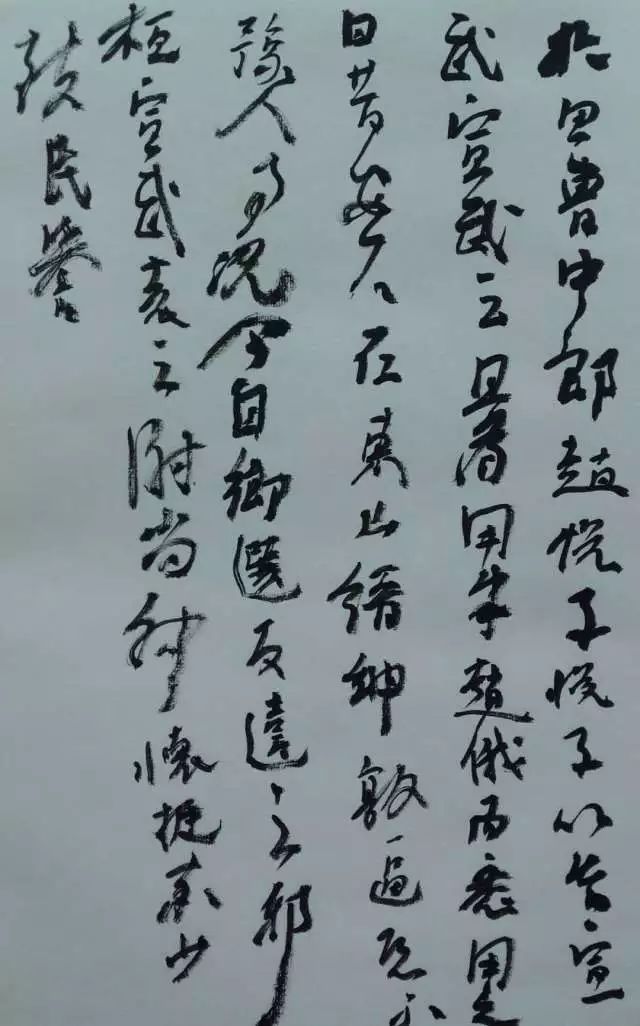 於田曹中郎趙悅子悅子以告宣
武宣武云且為用半趙俄而悉用之
曰昔安石在東山縉紳敦逼恐不
豫人事況今自鄉選反違之邪
桓宣武表云謝尚神懷挺率少
致民譽